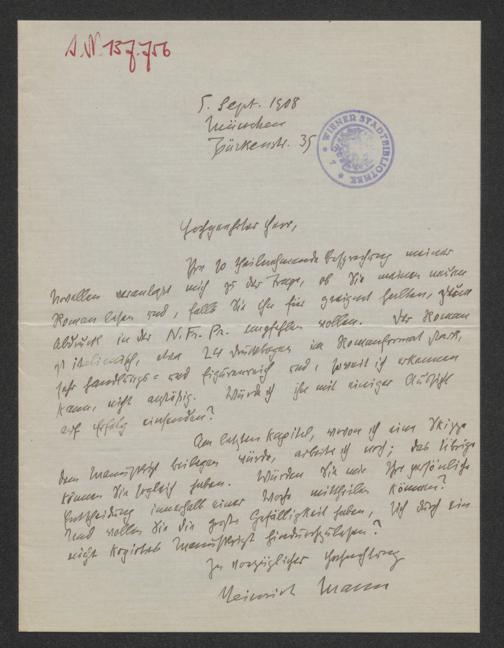 J.N. 137.756
5. Sept. 1908
München
Türkenstr. 35
WIENER STADTBIBLIOTHEK
Hochgeehrter Herr,
Ihre so theilnehmende Besprechung meiner
Novellen veranlaßt mich zu der Frage, ob Sie meinen neuen
Roman lesen und, falls Sie ihn für geeignet halten, zum
Abdruck in der N. Fr. Pr. empfehlen wollen. Der Roman
ist italienisch, etwa 24 Druckbogen im Romanformat stark,
sehr handlungs- und figurenreich und, soweit ich erkennen
kann, nicht anstößig. Würde ich ihn mit einiger Aussicht
auf Erfolg einsenden?
Am letzten Kapitel, wovon ich eine Skizze
dem Manuskript beilegen würde, arbeite ich noch; das Übrige
können Sie sogleich haben. Würden Sie mir Ihre persönliche
Entscheidung innerhalb einer Woche mittheilen können?
Und wollen Sie die große Gefälligkeit haben, sich durch ein
nicht kopirtes Manuskript hindurchzulesen?
In vorzüglicher Hochachtung
Heinrich Mann